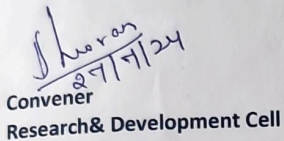 Sheoran
27/7/24
Convener
Research& Development Cell